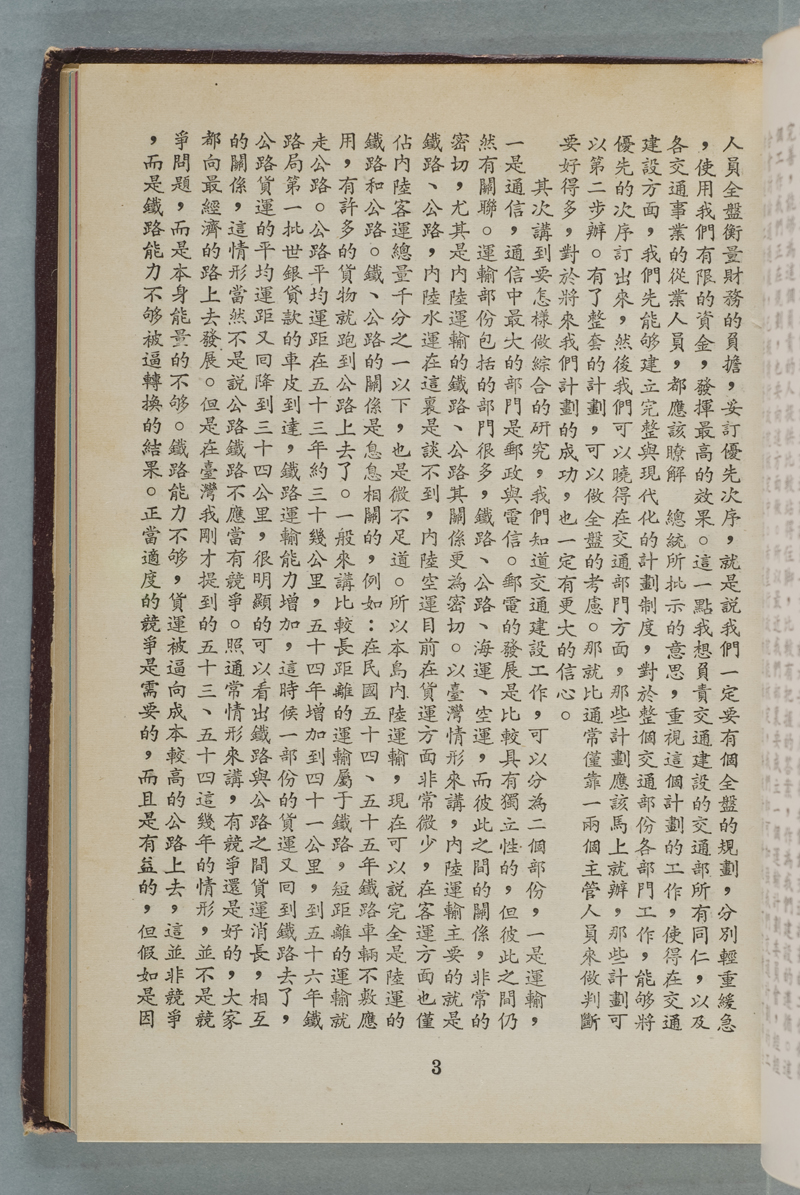 人員全盤衡量財務的負擔，妥訂優先次序，就是說我們一定要有個全盤的規劃，分別輕重緩急
，使用我們有限的資金，發揮最高的效果。這一點我想負責交通建設的交通部所有同仁，以及
各交通事業的從業人員，都應該瞭解　總統所批示的意思，重視這個計劃的工作，使得在交通
建設方面，我們先能够建立完整與現代化的計劃制度，對於整個交通部份各部門工作，能够將
優先的次序訂出來，然後我們可以曉得在交通部門方面，那些計劃應該馬上就辦，那些計劃可
以第二步辦。有了整套的計劃，可以做全盤的考慮。那就比通常僅靠一兩個主管人員來做判斷
要好得多，對於將來我們計劃的成功，也一定有更大的信心。
其次講到要怎樣做綜合的研究，我們知道交通建設工作，可以分為二個部份，一是運輸，
一是通信，通信中最大的部門是郵政與電信。郵電的發展是比較具有獨立性的，但彼此之間仍
然有關聯。運輸部份包括的部門很多，鐵路、公路、海運、空運，而彼此之間的關係，非常的
密切，尤其是內陸運輸的鐵路、公路其關係更為密切。以臺灣情形來講，內陸運輸主要的就是
鐵路、公路，內陸水運在這裏是談不到，內陸空運目前在貨運方面非常微少，在客運方面也僅
佔內陸客運總量千分之一以下，也是微不足道。所以本島內陸運輸，現在可以說完全是陸運的
鐵路和公路。鐵、公路的關係是息息相關的，例如：在民國五十四、五十五年鐵路車輛不敷應
用，有許多的貨物就跑到公路上去了。一般來講比較長距離的運輸屬于鐵路，短距離的運輸就
走公路。公路平均運距在五十三年約三十幾公里，五十四年增加到四十一公里，到五十六年鐵
路局第一批世銀貸款的車皮到達，鐵路運輸能力增加，這時候一部份的貨運又回到鐵路去了，
公路貨運的平均運距又回降到三十四公里，很明顯的可以看出鐵路與公路之間貨運消長，相互
的關係，這情形當然不是說公路鐵路不應當有競爭。照通常情形來講，有競爭還是好的，大家
都向最經濟的路上去發展。但是在臺灣我剛才提到的五十三、五十四這幾年的情形，並不是競
爭問題，而是本身能量的不够。鐵路能力不够，貨運被逼向成本較高的公路上去，這並非競爭
，而是鐵路能力不够被逼轉換的結果。正當適度的競爭是需要的，而且是有益的，但假如是因
3